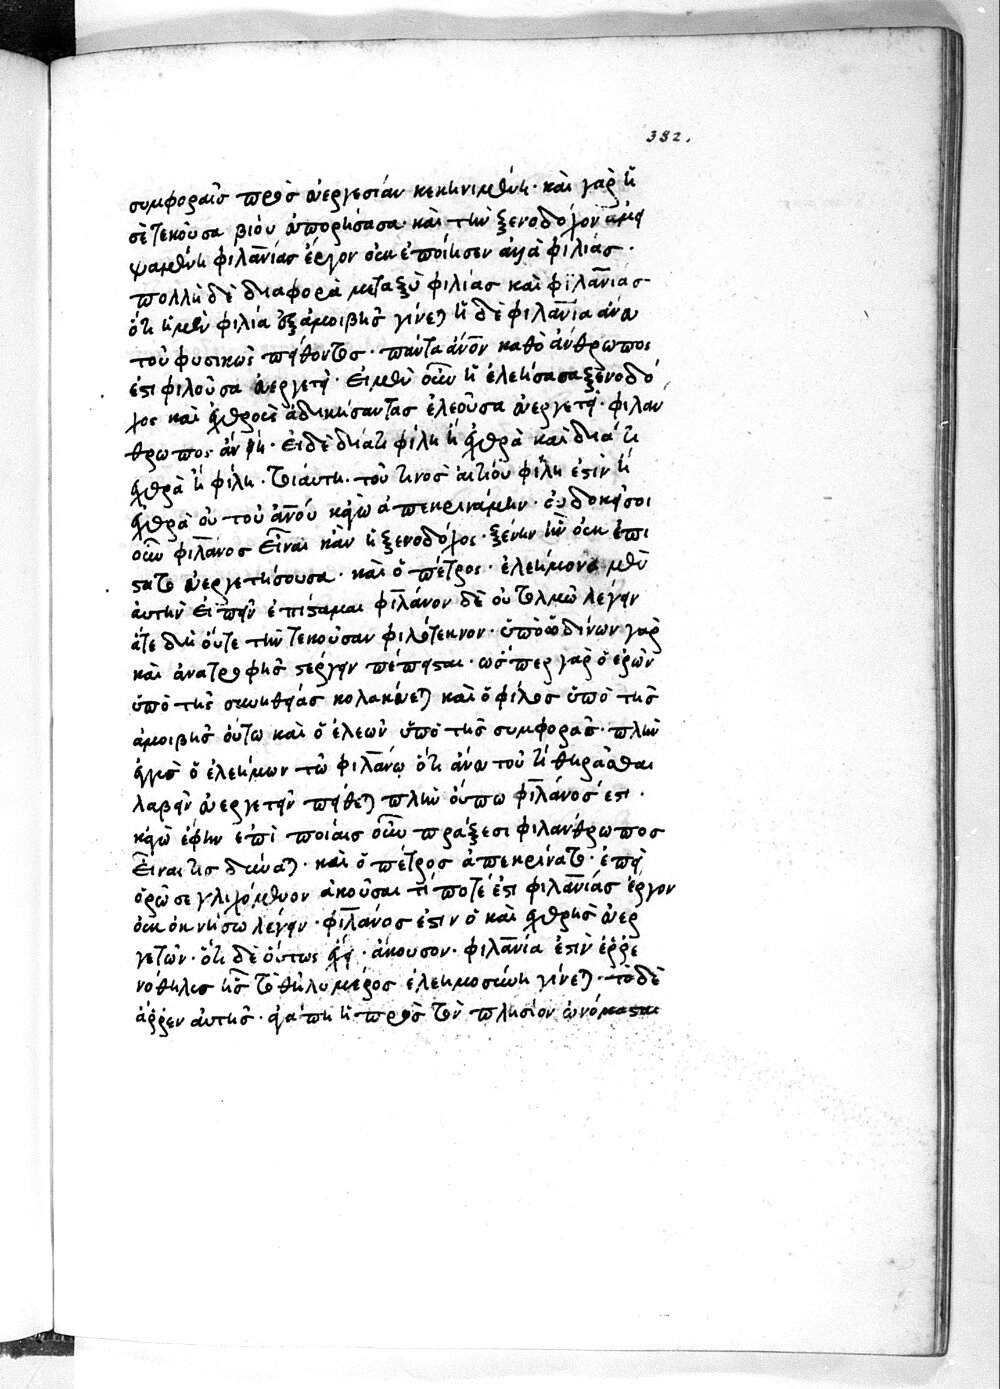 332.
συμφοραῖς πρὸς εὐεργεσίαν κεκινημένη· καὶ γὰρ ἡ
σὲ τεκοῦσα βίου ἀπορήσασα· καὶ τὴν ξενοδόχον ἀμει
ψαμένη φιλανίας ἔργον οὐκ ἐποίησεν ἀλλὰ φιλίας·
πολλὴ δὲ διαφορὰ μεταξὺ φιλίας καὶ φιλανίας
ὅτι ἡ μὲν φιλία ἐξ ἀμοιβῆς γίνεται ἡ δὲ φιλανία ἄνευ
τοῦ φυσικῶς πείθοντος· πάντα ἄνον καθὸ ἄνθρωπος
ἐστι φιλοῦσα εὐεργετεῖ· εἰ μὲν οὖν ἡ ἐλεήσασα ξενοδό
χος καὶ ἐχθροὺς ἀδικήσαντας ἐλεοῦσα εὐεργετεῖ· φιλαν
θρωπος ἂν εἴη· εἰ δὲ διά τι φίλη ἢ ἐχθρὰ καὶ διά τι
ἐχθρὰ ἢ φίλη· τοιαύτη· τοῦ τινος αἰτίου φίλη ἐστὶν ἢ
ἐχθρὰ οὐ τοῦ ἀνου κἀγὼ ἀπεκρινάμην· οὐ δοκεῖ σοι
οὖν φιλανος εἶναι κἂν ἡ ξενοδόχος· ξένην ἣν οὐκ ἐπί
στατο εὐεργετήσουσα· καὶ ὁ πέτρος· ἐλεήμονα μὲν
αὐτὴν εἰπεῖν ἐπίσταμαι φιλάνον δὲ οὐ τολμῶ λέγειν
ἅτε δὴ οὔτε τὴν τεκοῦσαν φιλότεκνον· ὑπὸ ὠδίνων γὰρ
καὶ ἀνατροφῆς στέργειν πέπεισται· ὥσπερ γὰρ ὁ ἐρῶν
ὑπὸ τῆς συνηθείας κολακεύεται καὶ ὁ φίλος ὑπὸ τῆς
ἀμοιβῆς οὕτω καὶ ὁ ἐλεῶν ὑπὸ τῆς συμφορᾶς· πλὴν
ἐγγὺς ὁ ἐλεήμων τῷ φιλάνῳ ὅτι ἄνευ τοῦ τι θηρᾶσθαι
λαβεῖν εὐεργετεῖν πείθεται πλὴν οὔπω φιλάνος ἐστι·
κἀγὼ ἔφην ἐπὶ ποίαις οὖν πράξεσι φιλανθρωπος
εἶναι τις δύναται· καὶ ὁ πέτρος ἀπεκρίνατο· ἐπεὶ
ὁρῶ σε γλιχόμενον ἀκοῦσαι τί ποτέ ἐστι φιλανίας ἔργον
οὐκ ὀκνήσω λέγειν· φιλάνος ἐστιν ὁ καὶ ἐχθροὺς εὐερ
γετῶν· ὅτι δὲ οὕτως ἔχει· ἄκουσον· φιλανία ἐστὶν ἀρρε
νόθηλυς ἧς τὸ θῆλυ μέρος ἐλεημοσύνη γίνεται· τὸ δὲ
ἄρρεν αὐτῆς· ἀγάπη ἡ πρὸς τὸν πλησίον ὠνόμασται